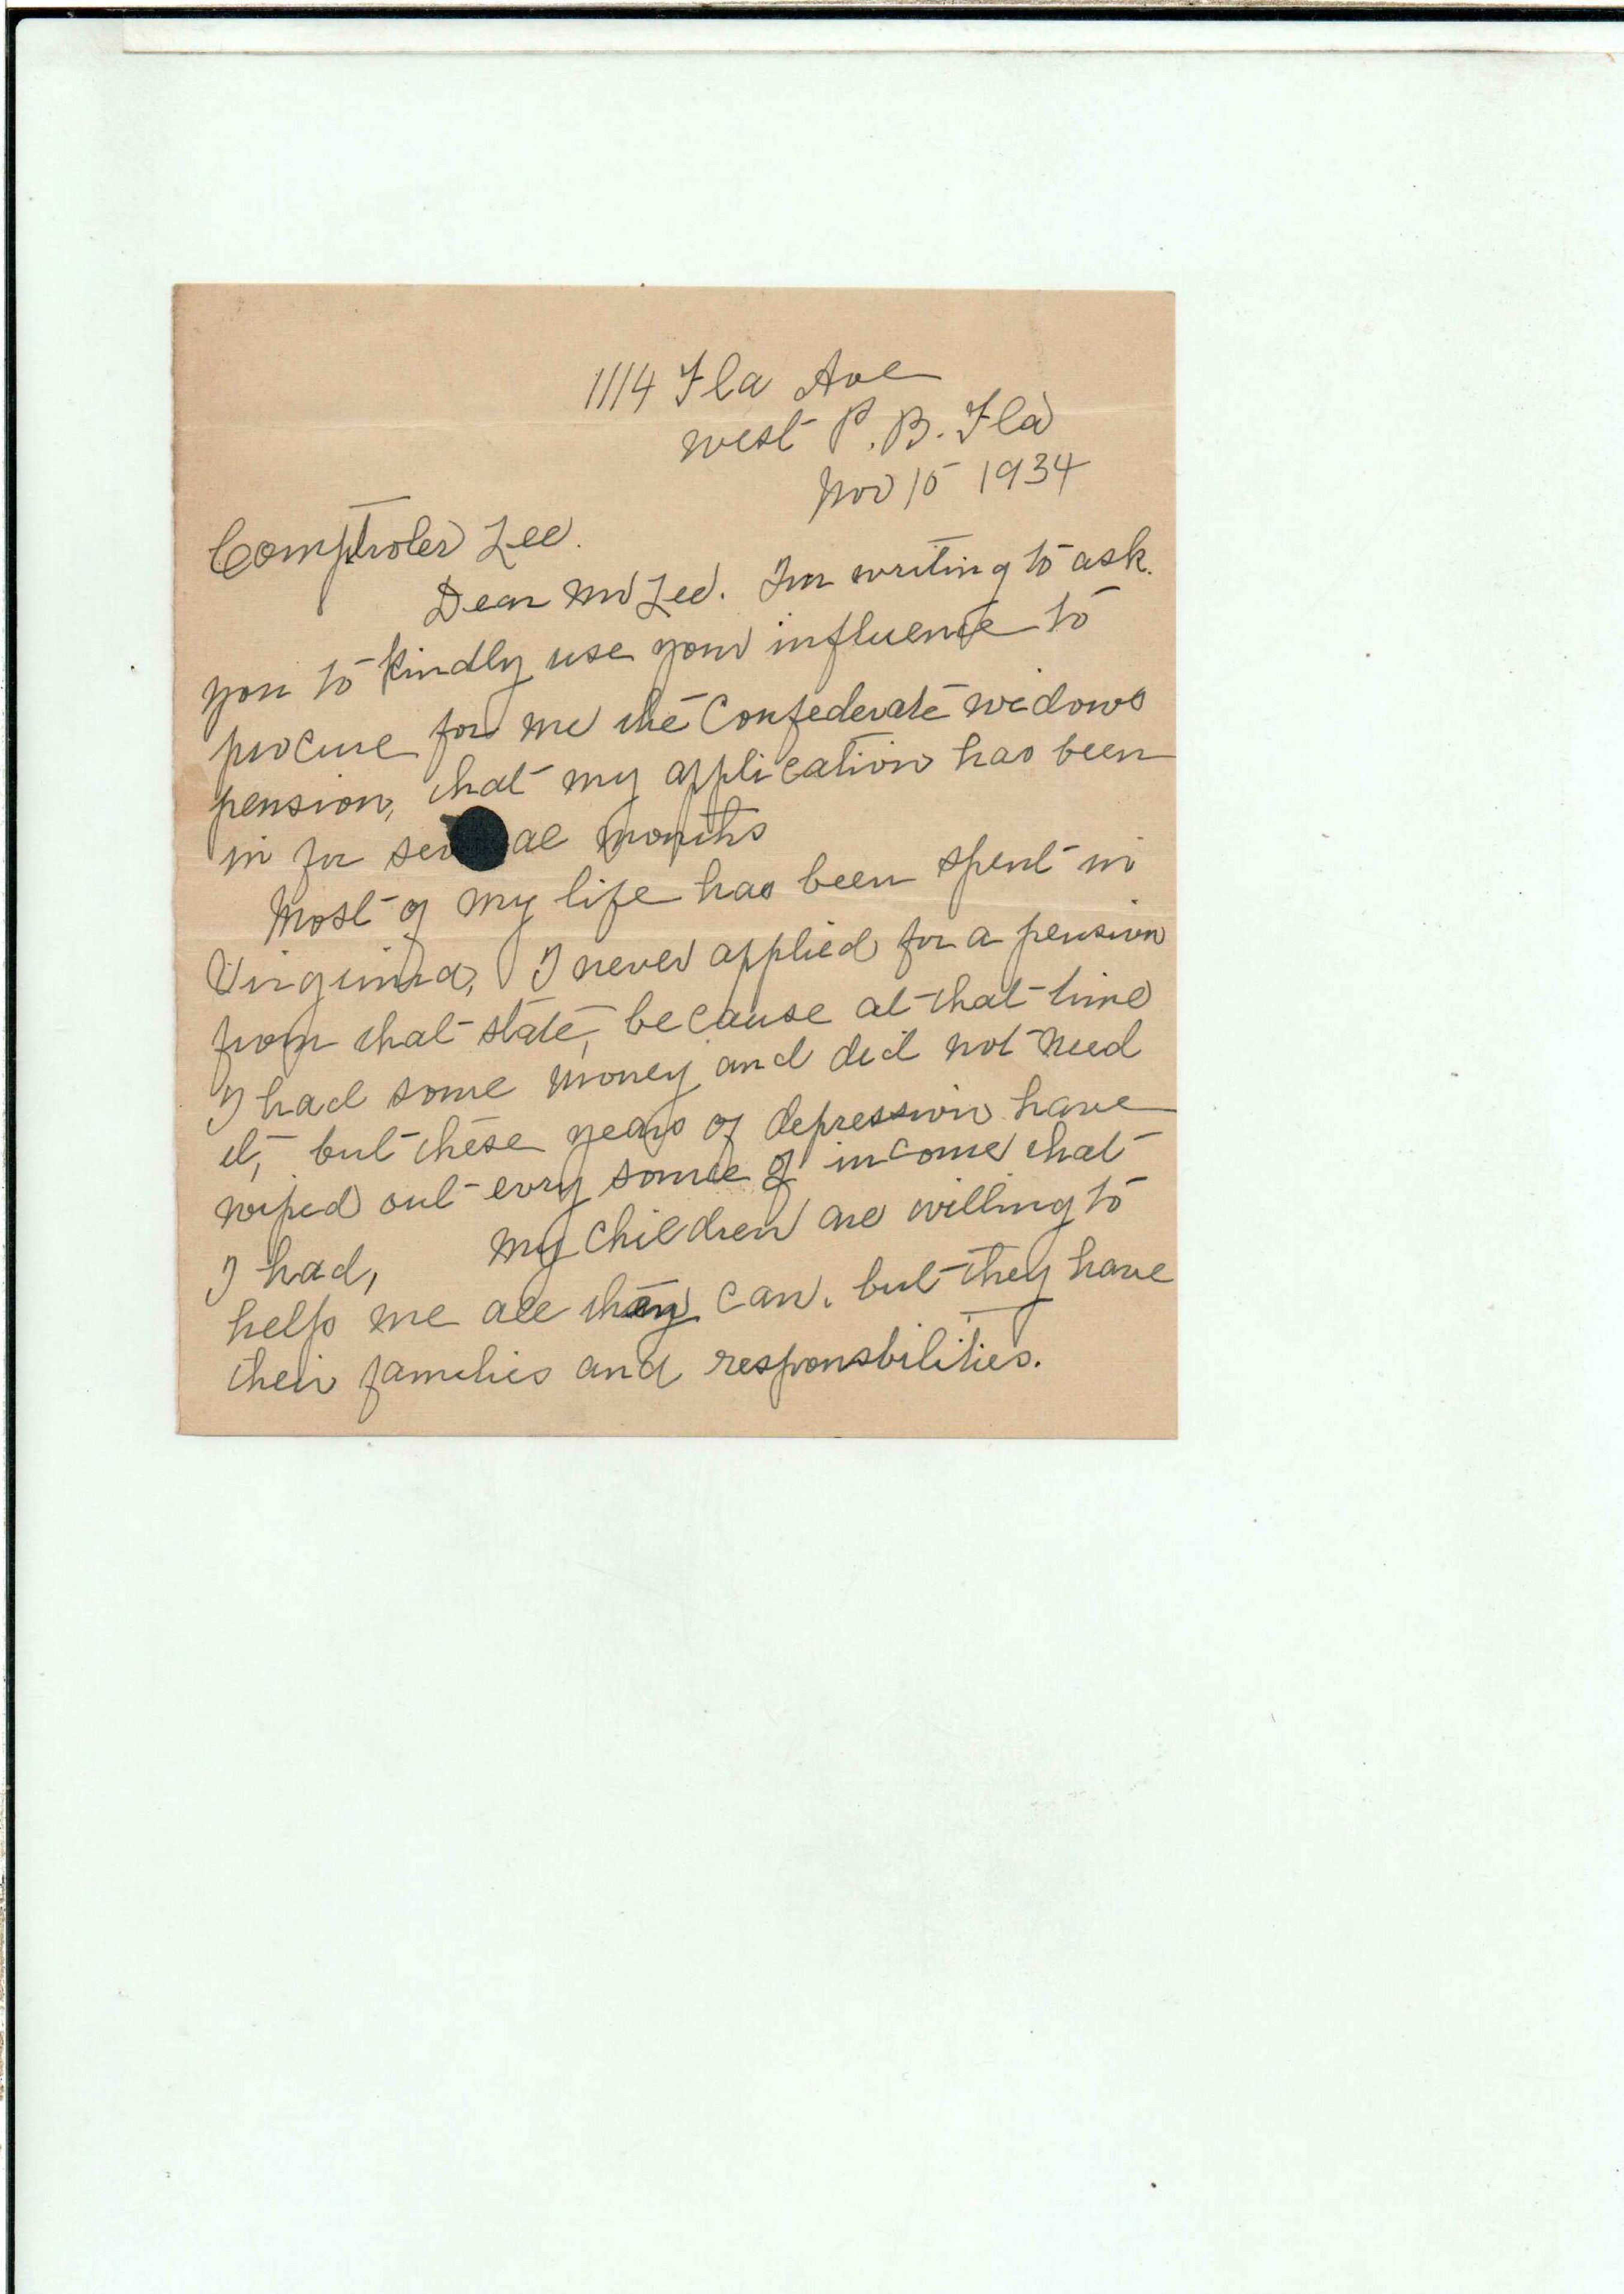 1114 Fla Ave
West P. B. Fla
Nov 15 1934
Comptroler Lee.
Dear Mr Lee. Im writing to ask.
you to kindly use your influence to
procure for me the Confederate widows
pension, that my application has been
in for several months
Most of my life has been spent in
Virginia, I never applied for a pension
from that state, because at that time
I had some money and did not need
it, but these years of depression have
wiped out evry source of income that
I had, My children are willing to
help me all they can. but they have
their families and responsbilities.